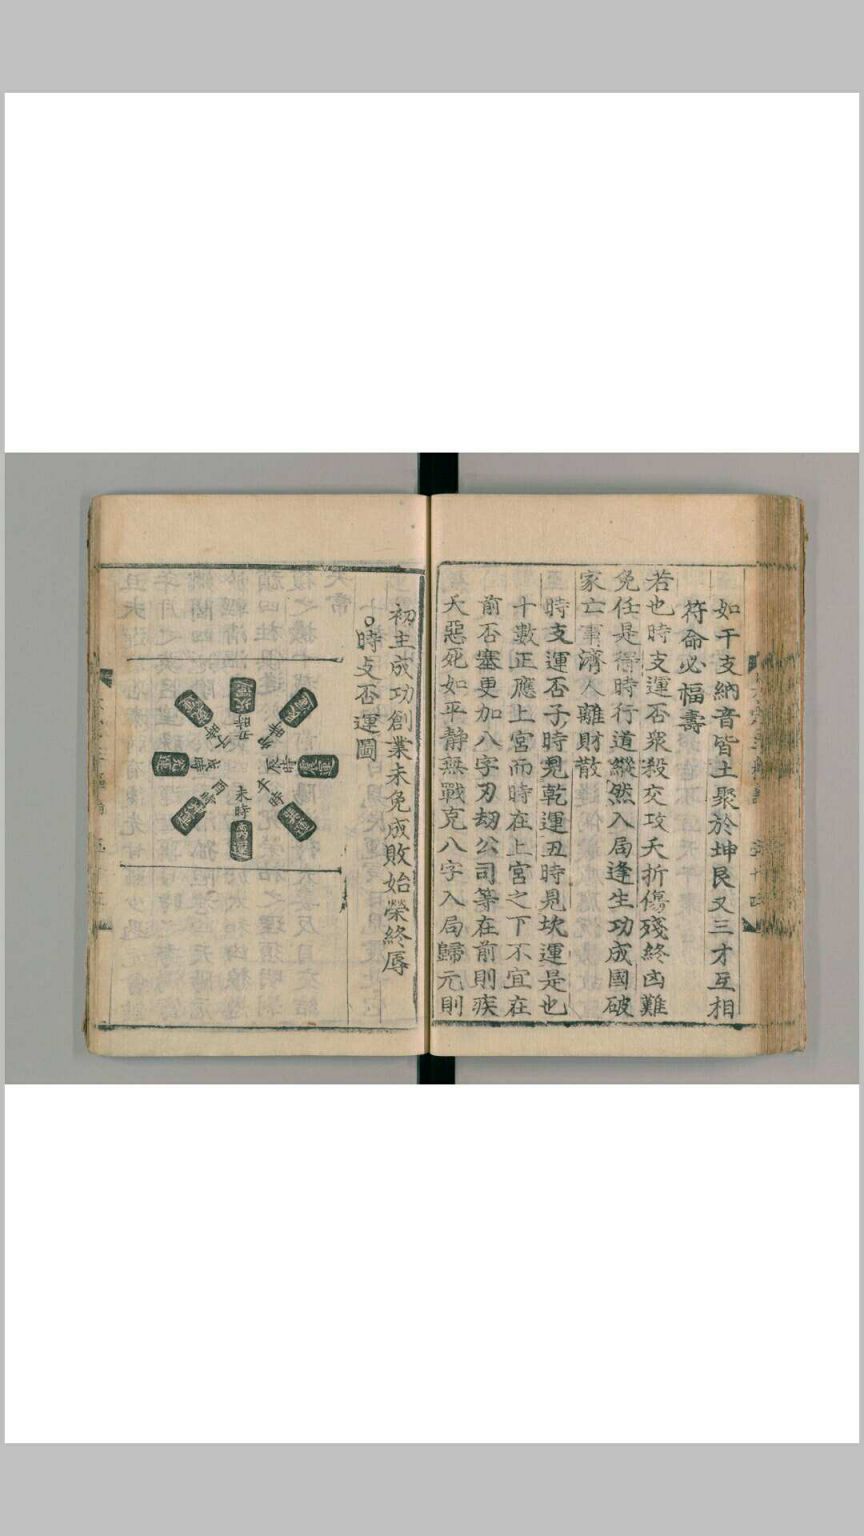 如干支納音皆土聚於坤艮又三才互相
符命必福壽
若也時支運否衆殺交攻夭折傷殘終凶難
免任是得時行道縱然入局逢生功成國破
家亡事濟人離財散
時支運否子時見乾運丑時見坎運是也
十數正應上宮而時在上宮之下不宜在
前否塞更加八字刃劫公司等在前則疾
夭惡死如平靜無戰克八字入局歸元則
初主成功創業未免成敗始榮終辱
○時支否運圖
丑時
辰時
未時
離運
酉時
戌時